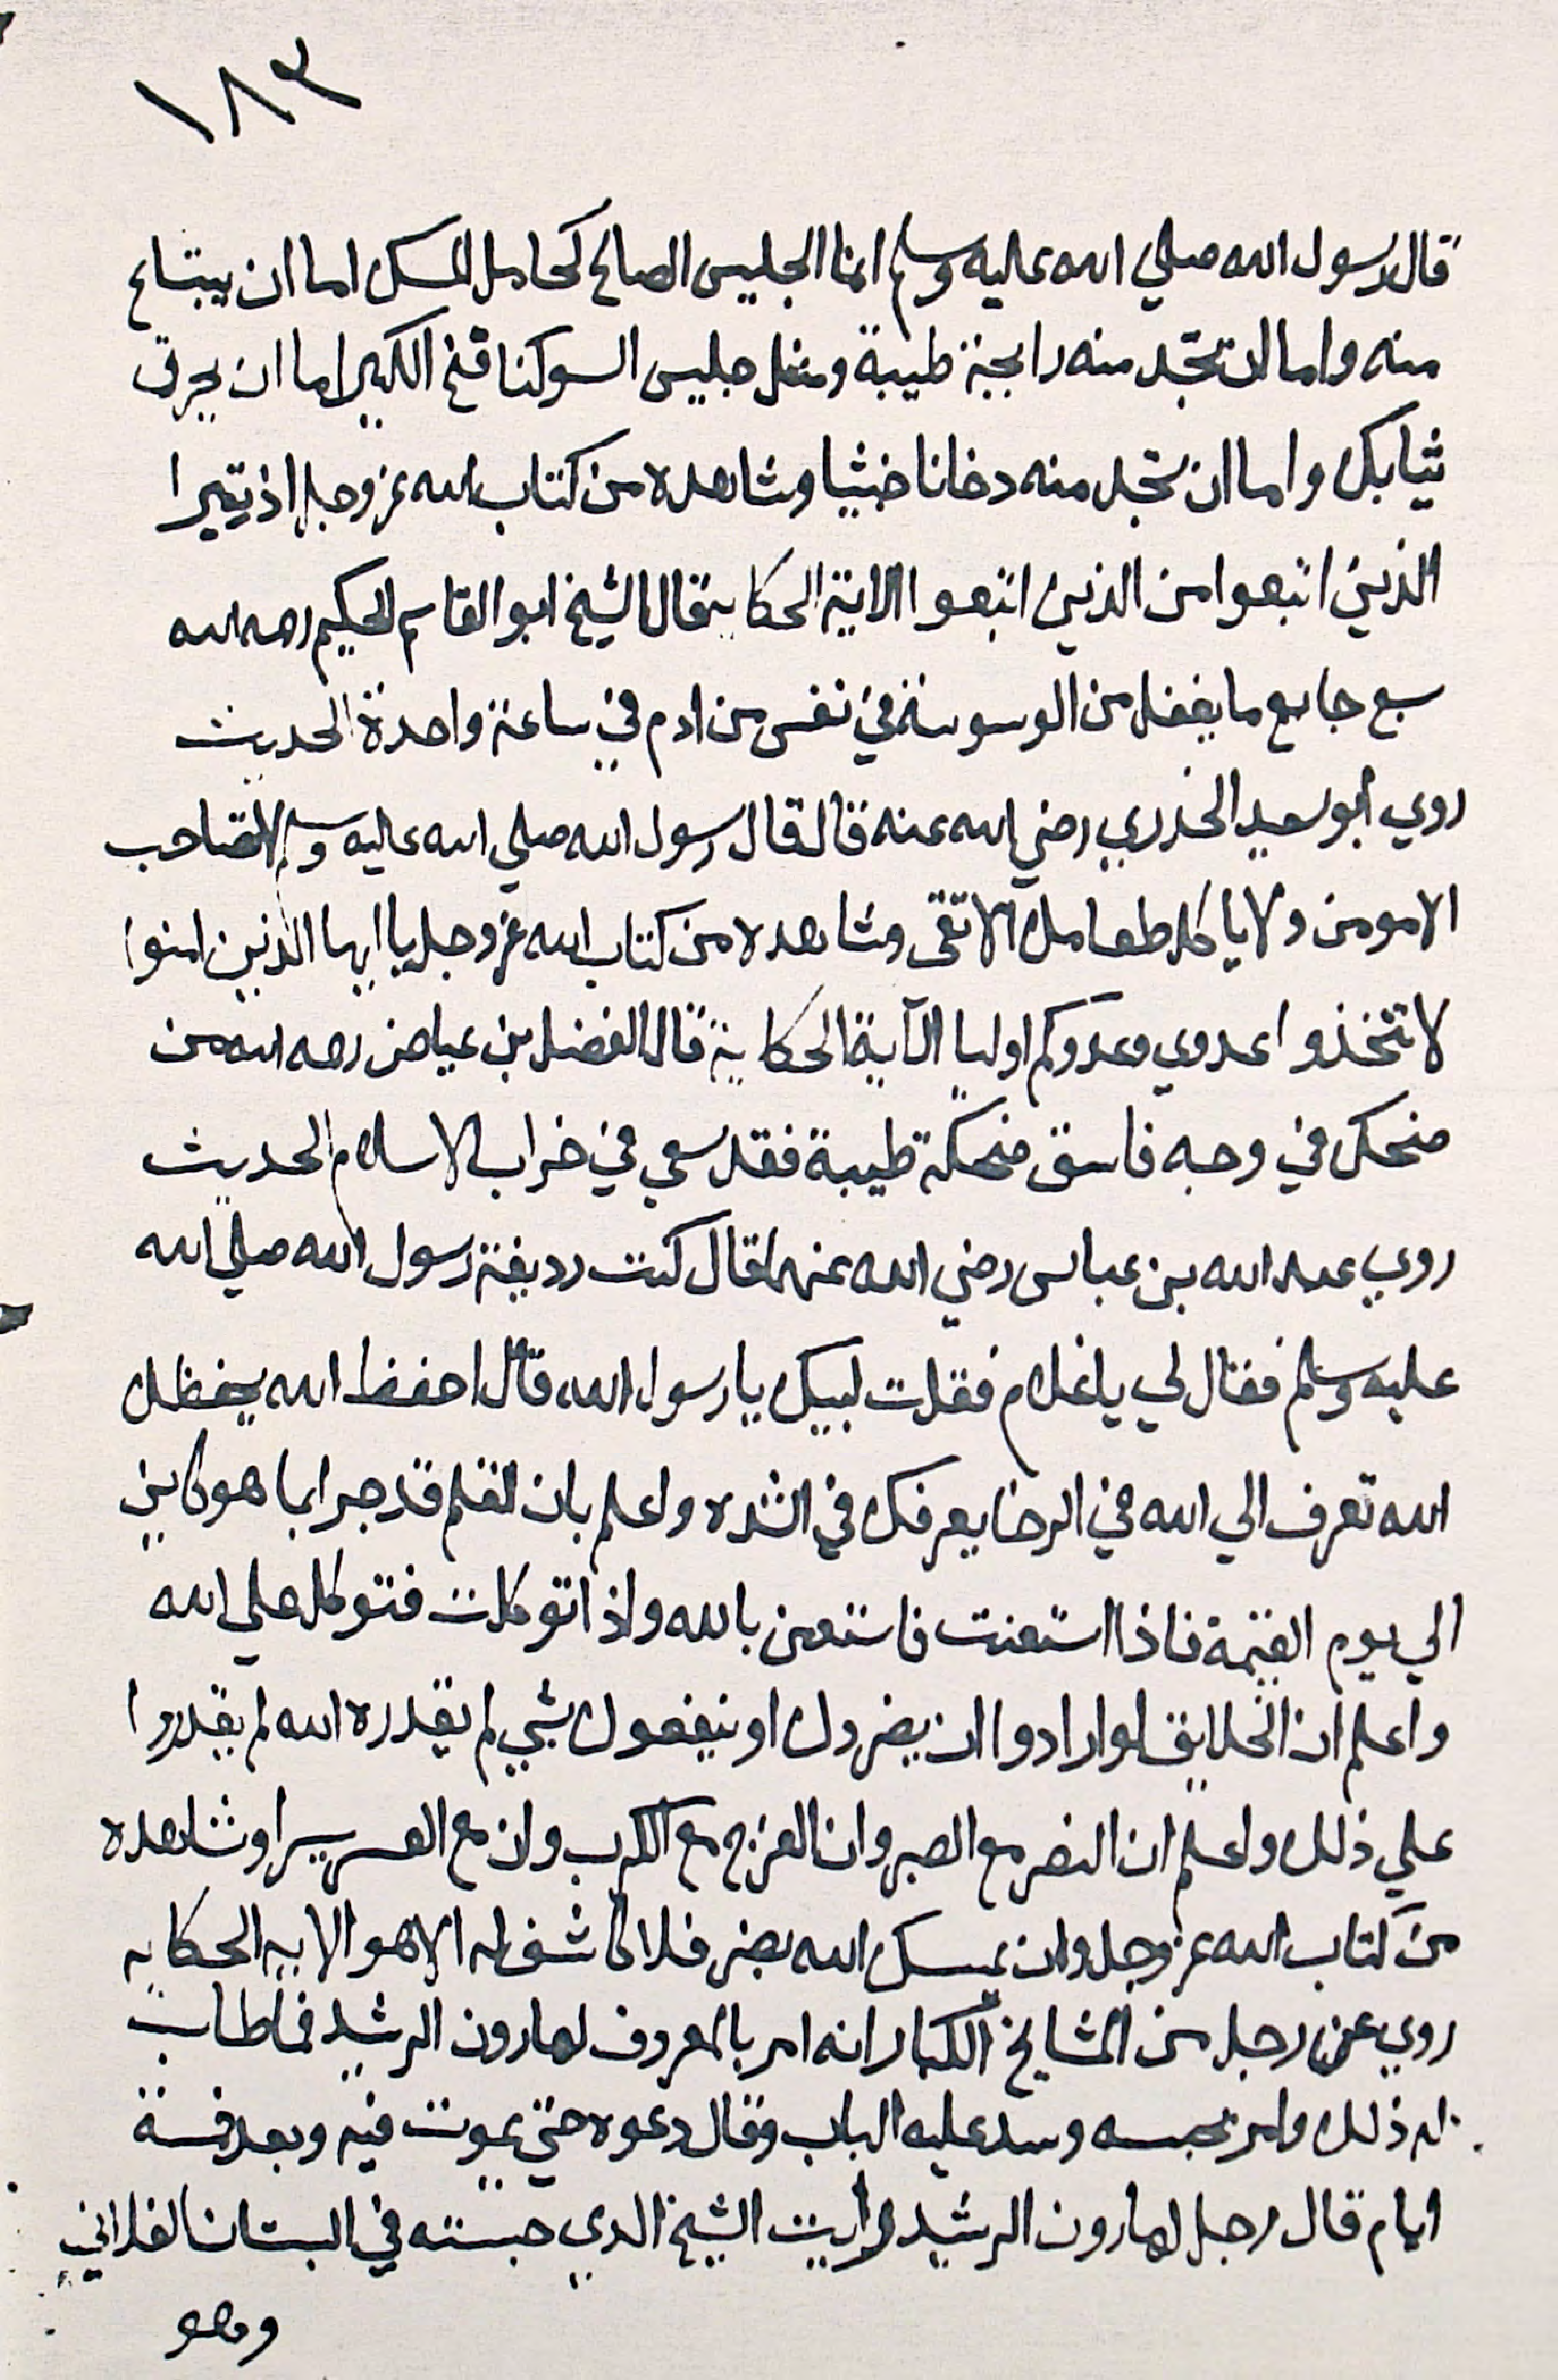 ١٨٣
قال رسول الله صلي الله عليه وسلم انما الجليس الصالح كحامل المسك اما ان يبتاع
منه واما ان تجد منه رايحة طيبة ومثل جليس السو كنافخ الكير اما ان يحرق
ثيابك واما ان تجد منه دخانا خبثيا وشاهده من كتاب الله عز وجل اذ تبرا
الذين اتبعوا من الذين اتبعوا الاية الحكاية قال الشيخ ابو القاسم الحكيم رحمه الله
سبع جايع ما يفعل من الوسوسة في نفس من ادم في ساعة واحدة الحديث
روي أبو سعيد الخدري رضي الله عنه قال قال رسول الله صلي الله عليه وسلم لا تصاحب
الا مومن ولا ياكل طعامك الا تقى وشاهده من كتاب الله عز وجل يا ايها الذين امنوا
لا تتخذوا عدوي وعدوكم اوليا الآية الحكاية قال الفضل بن عياض رحمه الله من
ضحك في وجه فاسق ضحكة طيبة فقد سعي في خراب الاسلام الحديث
روي عبد الله بن عباس رضي الله عنهما قال كنت رديفة رسول الله صلي الله
عليه وسلم فقال لي ياغلام فقلت لبيك يا رسول الله قال احفظ الله يحفظك
الله تعرف الي الله في الرخا يعرفك في الشده واعلم بان القلم قد جرا بما هو كاين
الي يوم القيمة فاذا استعنت فاستعن بالله واذا توكلت فتوكل علي الله
واعلم ان الخلايق لو ارادوا ان يضروك او ينفعوك بشي لم يقدره الله لم يقدروا
علي ذلك واعلم ان النصر مع الصبر وان الفرج مع الكرب وان مع العسر يسرا وشاهده
من كتاب الله عز وجل وان يمسسك الله بضر فلا كاشف له الا هو الايه الحكايه
روي عن رجل من المشايخ الكبار انه امر بالمعروف لهارون الرشيد فما طاب
له ذلك وامر بحبسه وسد عليه الباب وقال دعوه حتي يموت فيه وبعد خمسة
ايام قال رجل لهارون الرشيد رايت الشيخ الدي حبسته في البستان الفلاني
وهو